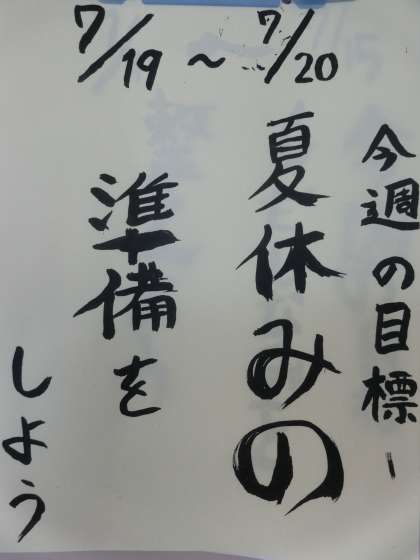 7/19～7/20
今週の目標ー
夏休みの
準備を
しよう